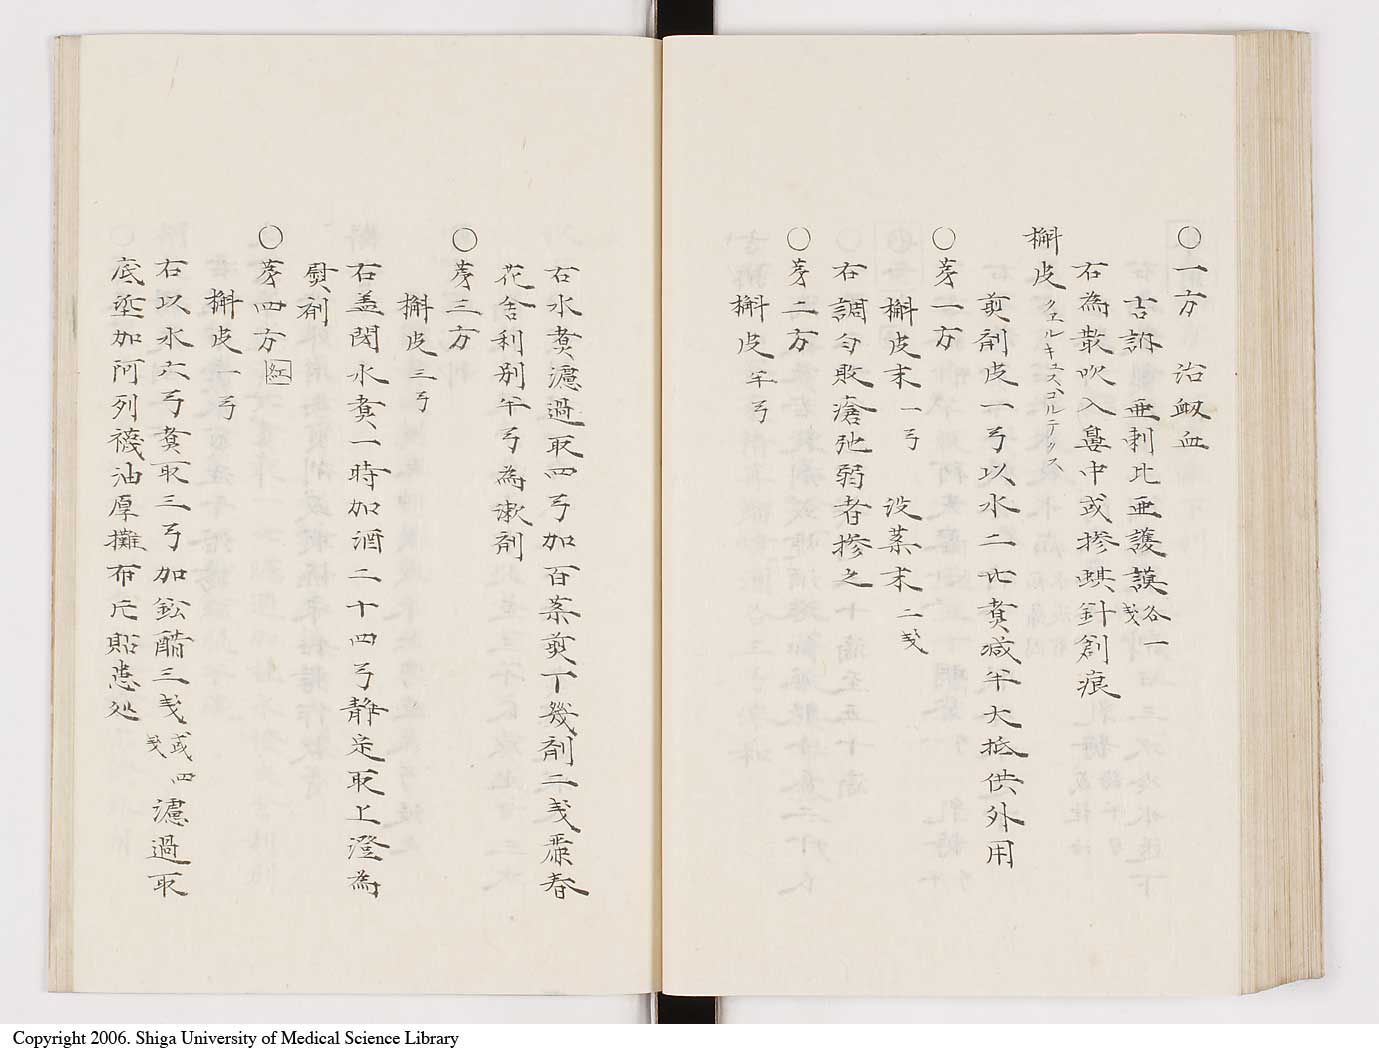 ○一方　治衂血
吉謝亜剌比亜護謨各一戔
右為散吹入鼻中或摻蜞針創痕
槲皮クエルキュスゴルテックス
煎剤皮一弓以水二十煑减半大抵供外用
○㐧一方
槲皮末一弓　没薬末二戔
右調匀敗瘡弛弱者摻之
○㐧二方
槲皮半弓
右水煑濾過取四弓加百薬煎丁幾剤二戔麝春
花舎利別半弓為漱剤
○㐧三方
槲皮三弓
右蓋閉水煑一時加酒二十四弓静定取上澄為
熨剤
○㐧四方 紅
槲皮一弓
右以水六弓煑取三弓加鉛醋三戔或四戔濾過取
底埿加阿列襪油厚攤布片貼患処
Copyright 2006. Shiga University of Medical Science Library